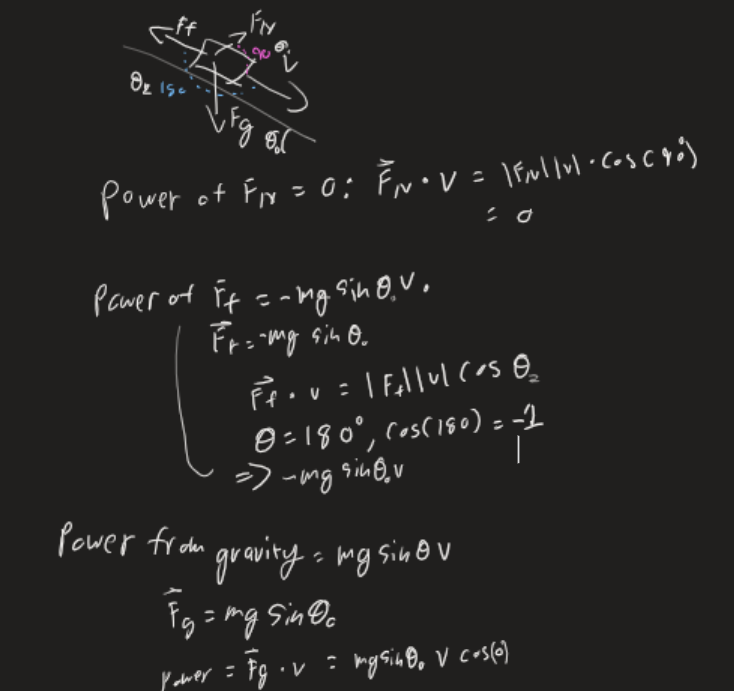 Ff
FN
90
θ1
v
θ2 180
Fg θ0
Power of FN = 0: F⃗N · V = |FN||v| · cos(90°)
= 0
Power of F⃗f = -mg sin θ0 V.
F⃗f = -mg sin θ0
F⃗f · v = |Ff||v| cos θ2
θ = 180°, cos(180) = -1
=> -mg sin θ0 v
Power from gravity = mg sin θ v
F⃗g = mg sin θ0
Power = F⃗g · v = mg sin θ0 v cos(0)